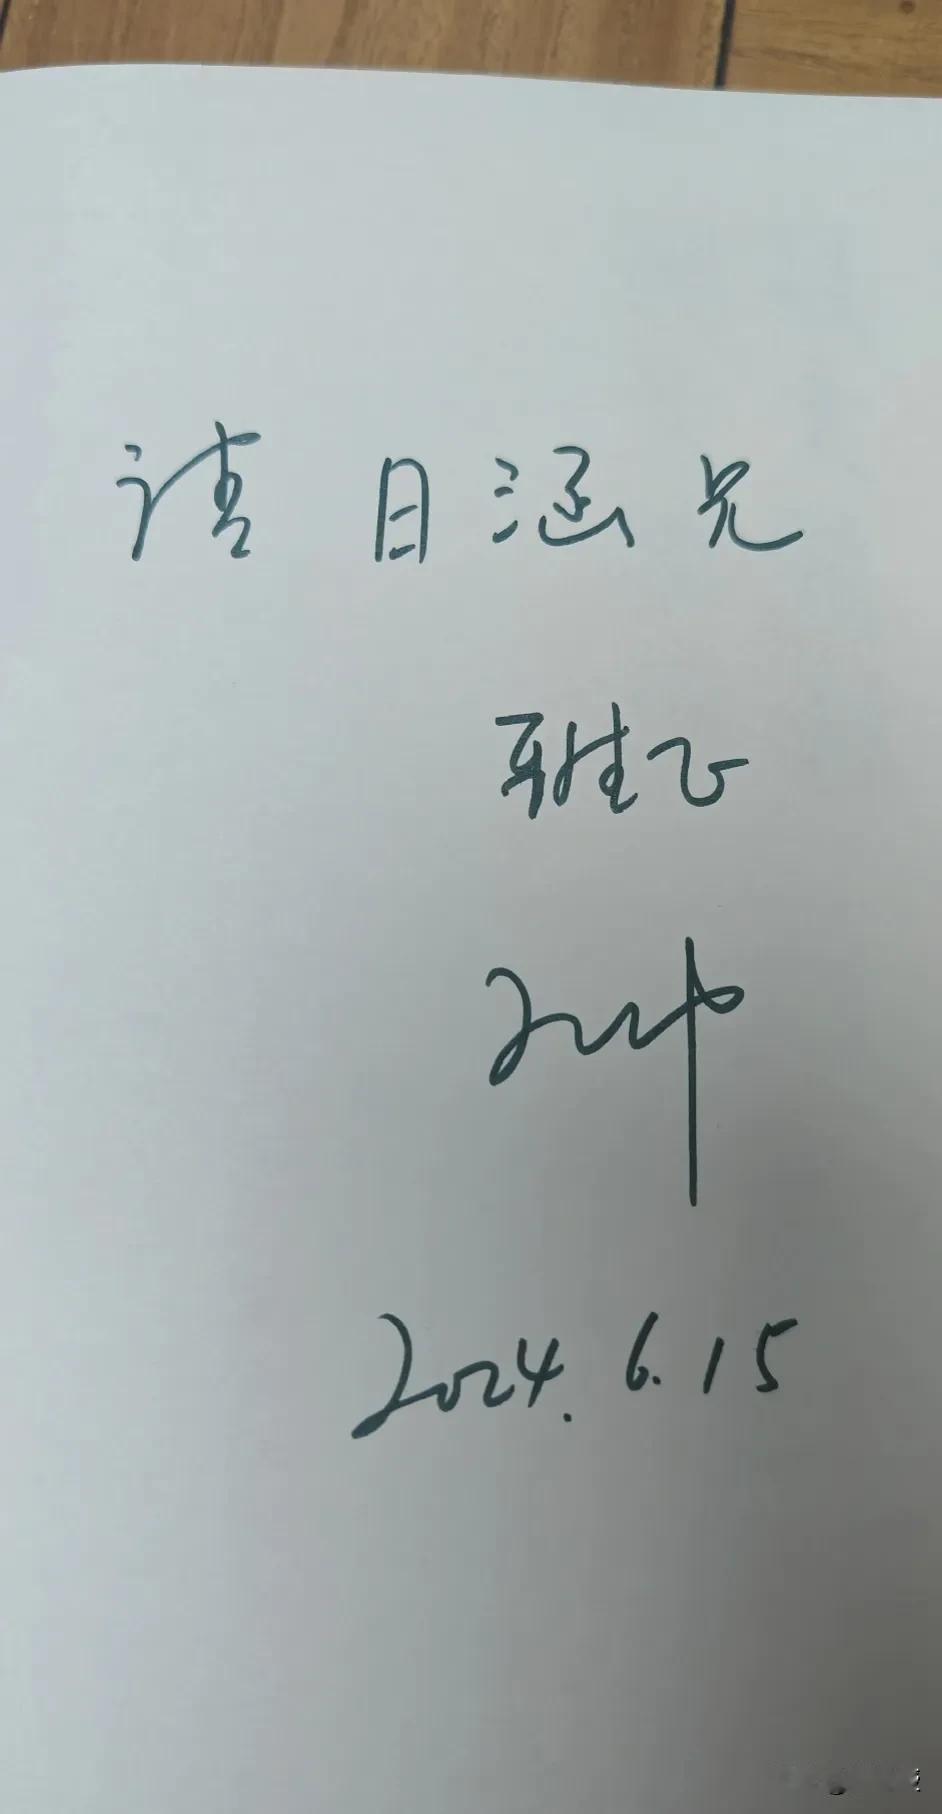 请 日涵 兄
雅正
2024.6.15